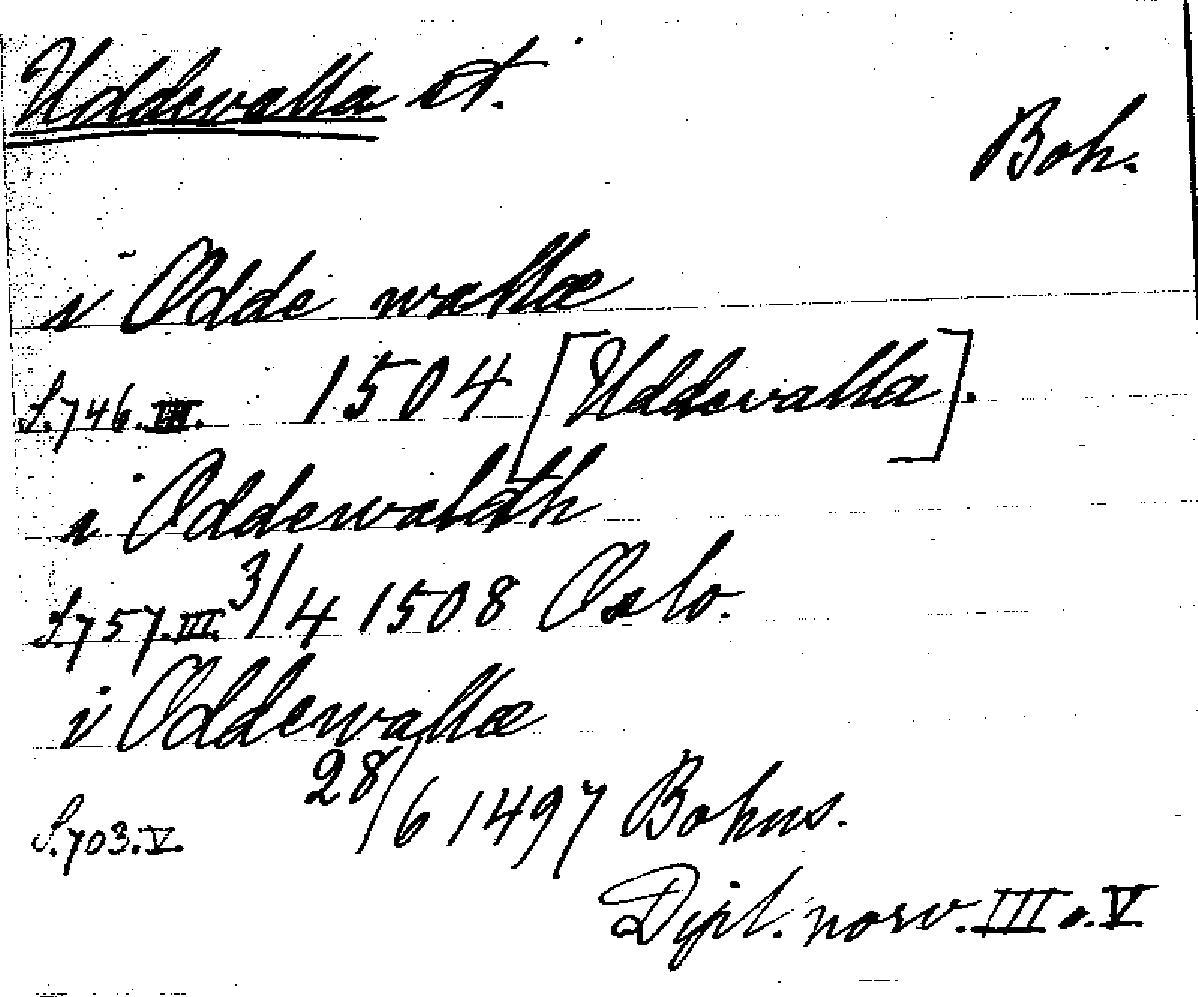 Uddevalla st.
Boh.
i Odde wallæ
S. 746. III. 1504 [Uddevalla].
i Oddewaldth
S. 757. III. 3/4 1508 Oslo.
i Oddewallæ
S. 703. V. 28/6 1497 Bohus.
Dipl. norv. III o. V